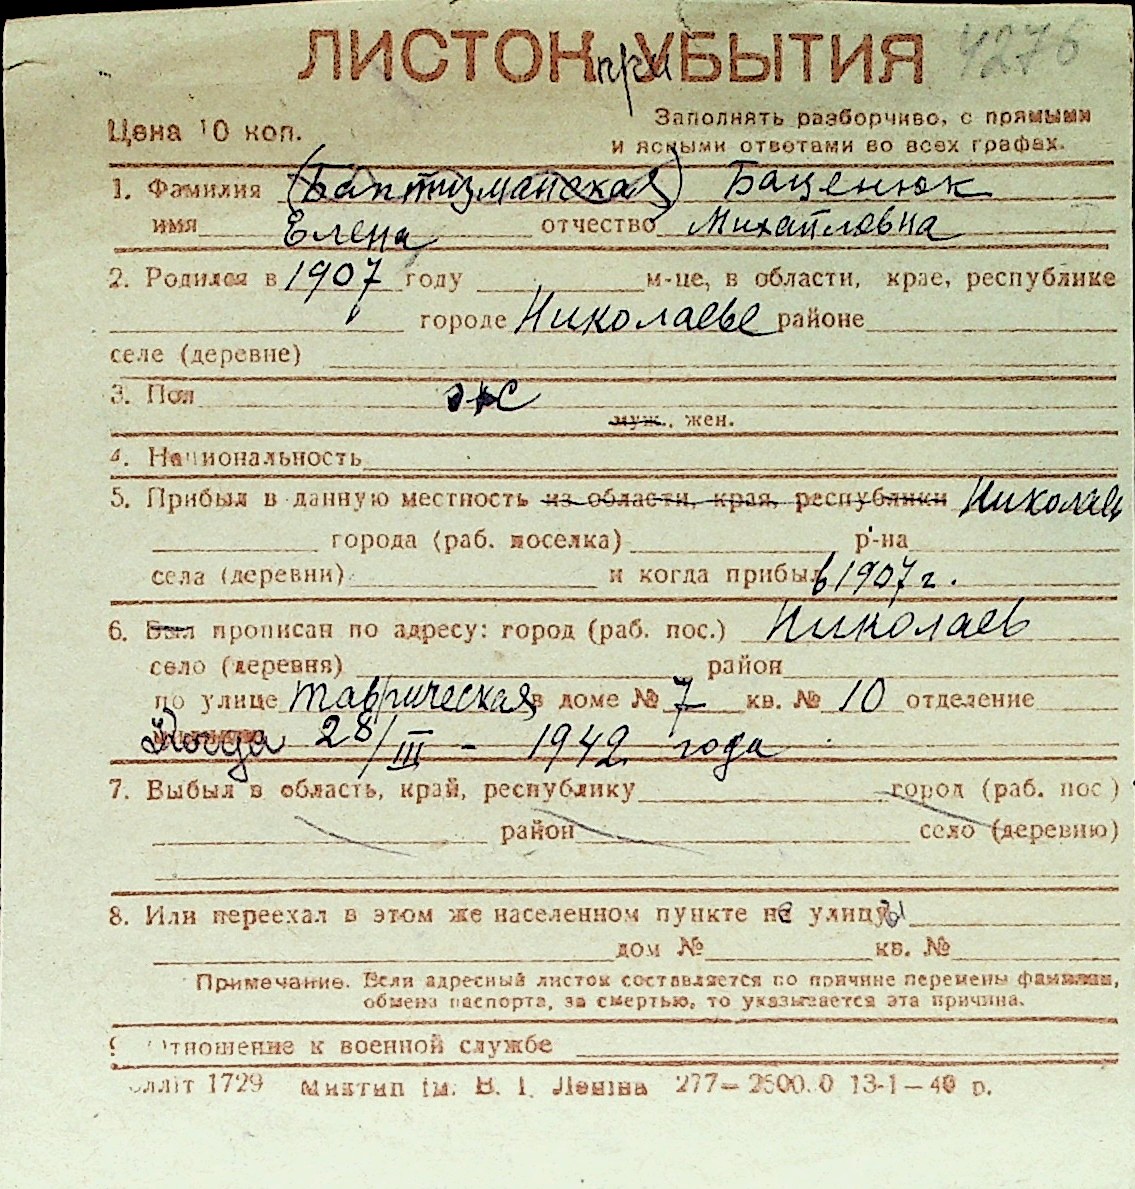 ЛИСТОК при УБЫТИЯ 4276
Цена 10 коп.
Заполнять разборчиво, с прямыми
и ясными ответами во всех графах.
1. Фамилия (Баптизманская) Баценюк
имя Елена отчество Михайловна
2. Родился в 1907 году м-це, в области, крае, республике
городе Николаеве районе
селе (деревне)
3. Пол ж
муж., жен.
4. Национальность
5. Прибыл в данную местность из области, края, республики Николаев
города (раб. поселка) р-на
села (деревни) и когда прибыл в 1907 г.
6. Был прописан по адресу: город (раб. пос.) Николаев
село (деревня) район
по улице Таврическая в доме № 7 кв. № 10 отделение
Когда 28/III - 1942 года
7. Выбыл в область, край, республику город (раб. пос)
район село (деревню)
8. Или переехал в этом же населенном пункте не улицы
дом № кв. №
Примечание. Если адресный листок составляется по причине перемены фамилии,
обмена паспорта, за смертью, то указывается эта причина.
9 Отношение к военной службе
олліт 1729 Миктип ім. В. І. Леніна 277—2500.0 13-1—40 р.